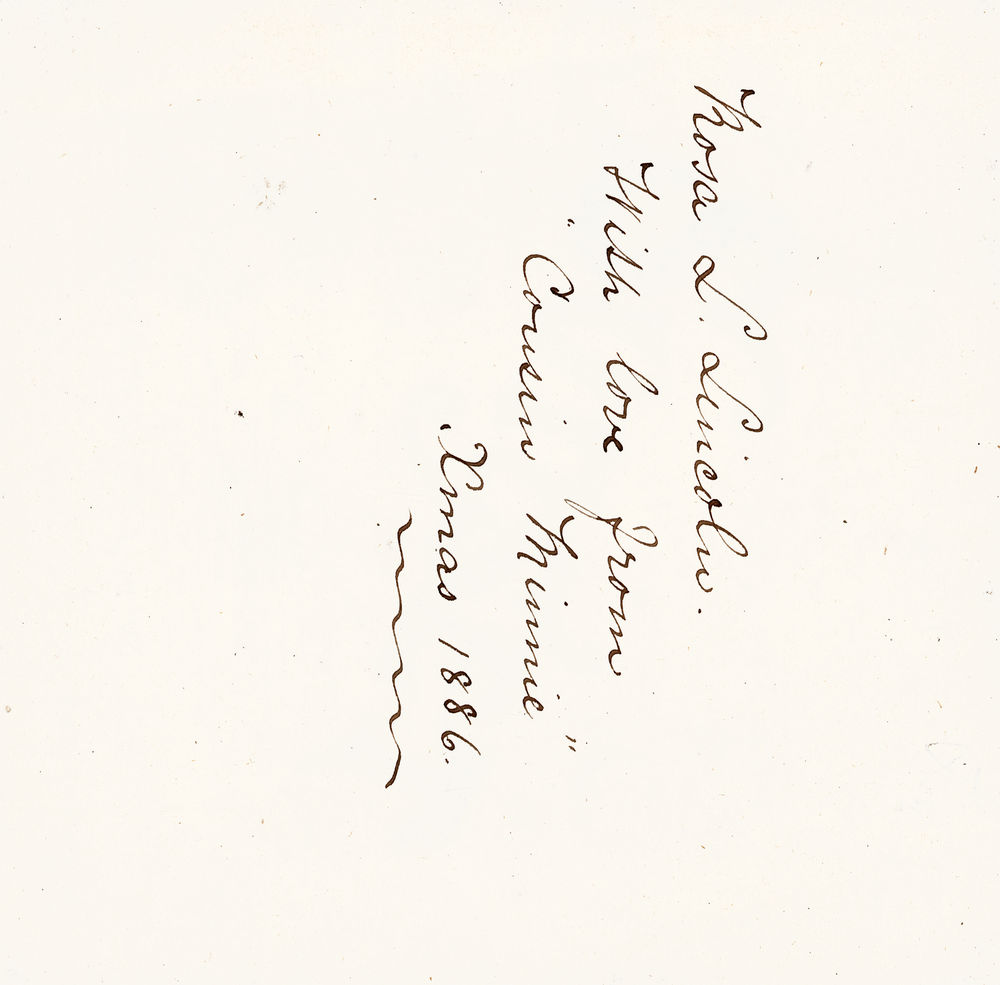 Rosa L. Lincoln.
With love from
"Cousin Minnie"
Xmas 1886.